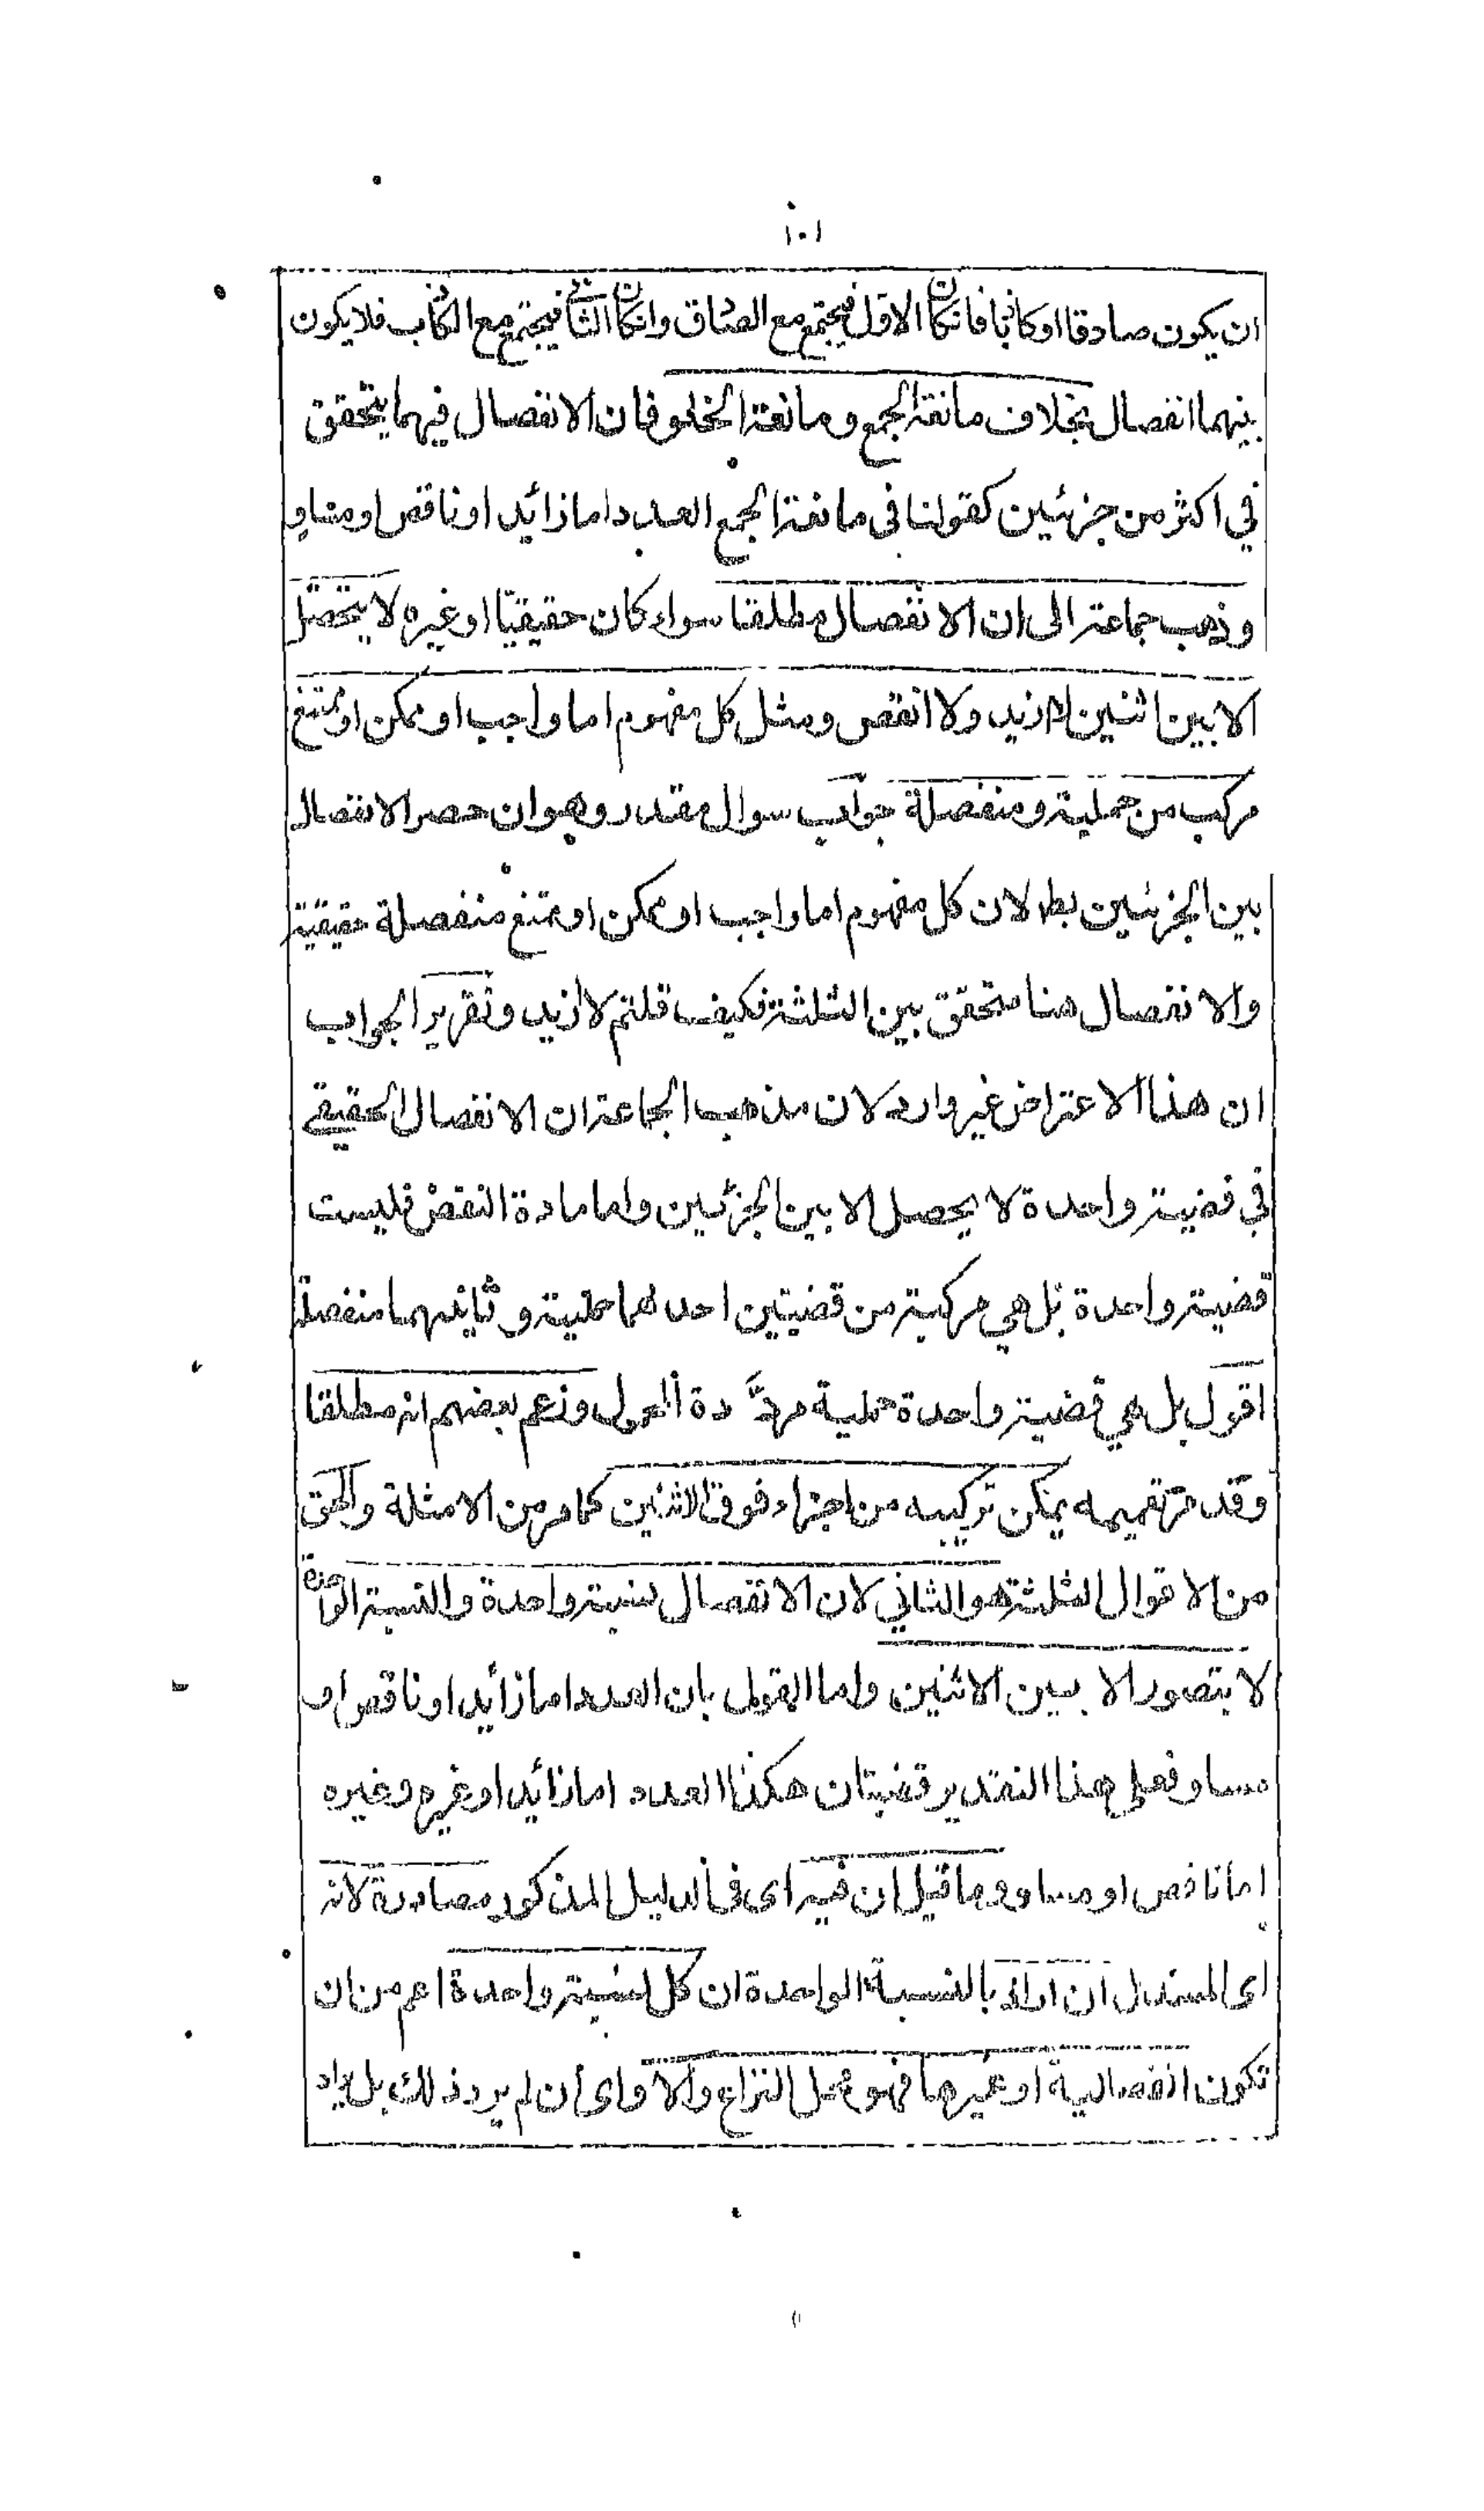 ١٠١
ان يكون صادقا او كاذبا فانكان الاول فيجتمع مع الصادق وانكان الثاني فيجتمع مع الكاذب فلا يكون
بينهما انفصال بخلاف مانعة الجمع ومانعة الخلو فان الانفصال فيهما يتحقق
في اكثر من جزئين كقولنا في مانعة الجمع العدد اما زائد او ناقص او مساو
وذهب جماعة الى ان الانفصال مطلقا سواء كان حقيقيّا او غيره لا يتحصّل
الا بين اثنين لا ازيد ولا انقص ومثل كل مفهوم اما واجب او ممكن او ممتنع
مركب من حملية ومنفصلة جواب سوال مقدر وهو ان حصر الانفصال
بين الجزئين بط لان كل مفهوم اما واجب او ممكن او ممتنع منفصلة حقيقية
والانفصال هنا متحقق بين الثلثة فكيف قلتم لا ازيد وتقرير الجواب
ان هذا الاعتراض غير وارد لان مذهب الجماعة ان الانفصال الحقيقے
في قضية واحدة لا يحصل الا بين الجزئين واما مادة النقض فليست
قضية واحدة بل هي مركبة من قضيتين احدهما حملية وثانيهما منفصلة
اقول بل هي قضية واحدة حملية مردَّدة المحمول وزعم بعضهم انه مطلقا
وقد مرّ تعميمه يمكن تركيبه من اجزاء فوق الاثنين كما مر من الامثلة والحق
من الاقوال الثلثة هو الثاني لان الانفصال نسبة واحدة والنسبة الواحدة
لا يتصور الا بين الاثنين واما القول بان العدد اما زائد او ناقص او
مساو فعلى هذا التقدير قضيتان هكذا العدد اما زائد او غيره وغيره
اما ناقص او مساو وما قيل ان فيه اى في الدليل المذكور مصادرة لانه
اى المستدل ان اراد بالنسبة الواحدة ان كل نسبة واحدة اعم من ان
تكون انفصالية او غيرها فهو محل النزاع والا واى ان لم يرد ذلك بل يراد